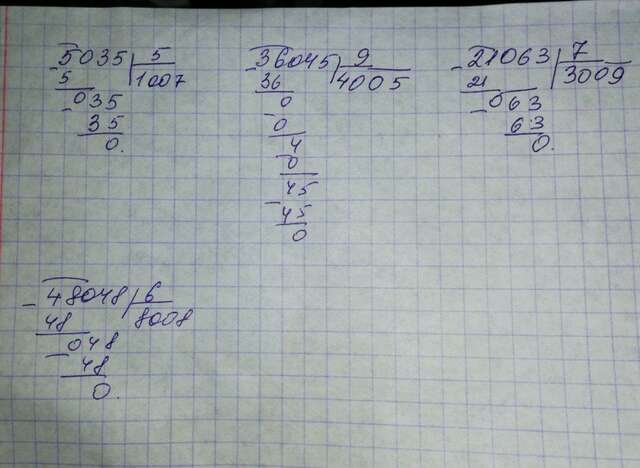 5035 | 5
5 | 1007
- 035
35
0.
- 36045 | 9
36 | 4005
0
- 0
4
0
45
- 45
0
- 21063 | 7
21 | 3009
- 063
63
0.
- 48048 | 6
48 | 8008
- 048
48
0.